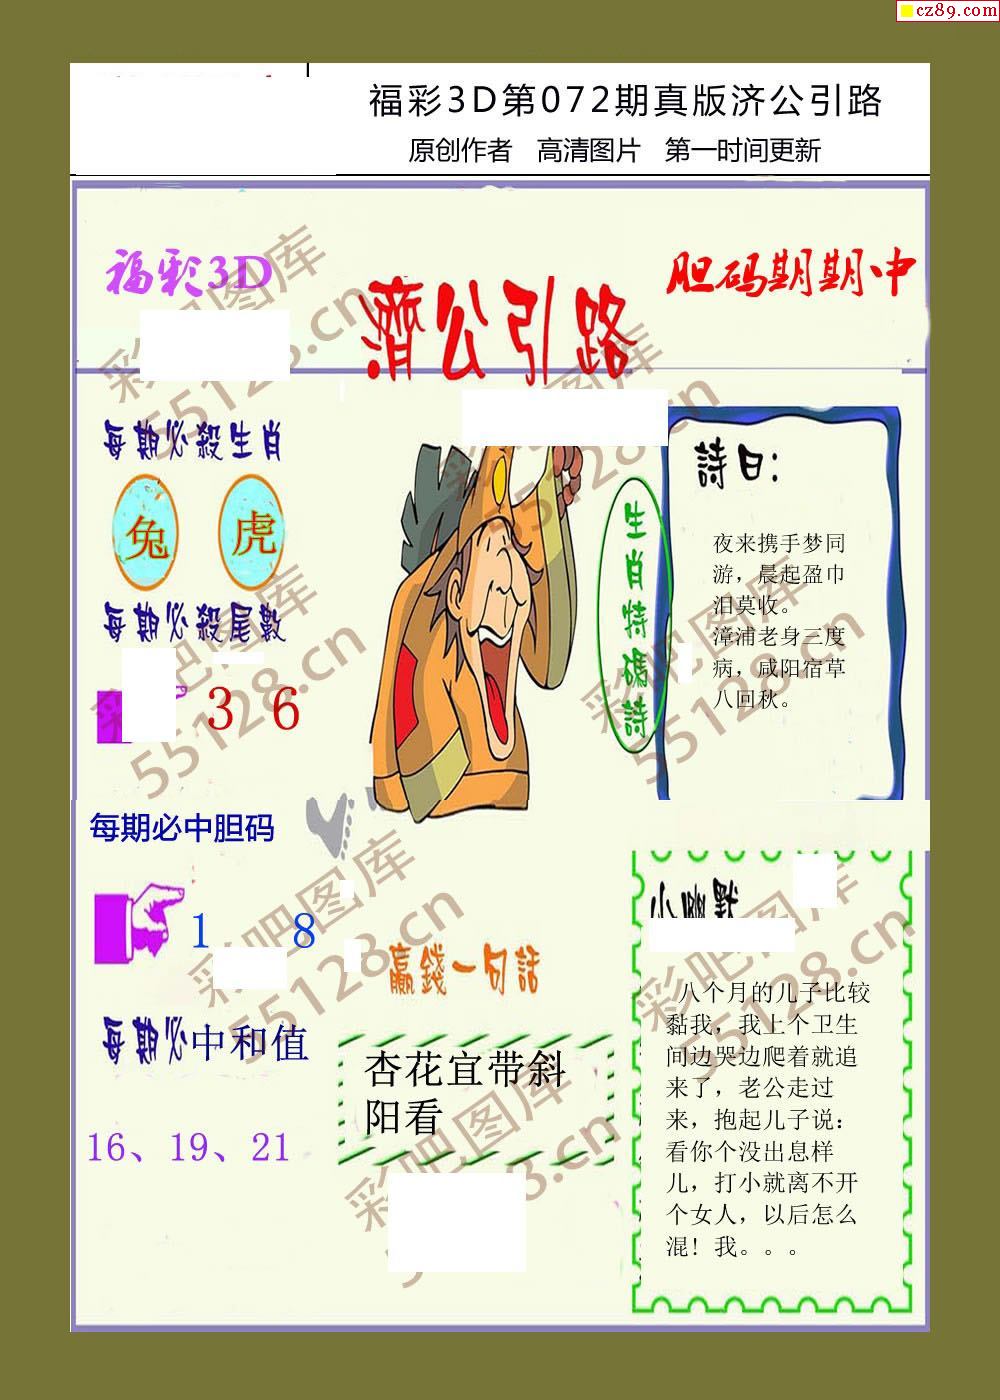 cz89.com
福彩3D第072期真版济公引路
原创作者 高清图片 第一时间更新
福彩3D
濟公引路
胆码期期中
每期必殺生肖
兔 虎
每期必殺尾數
3 6
每期必中胆码
1 8
每期必中和值
16、19、21
生肖特碼詩
詩曰：
夜来携手梦同
游，晨起盈巾
泪莫收。
漳浦老身三度
病，咸阳宿草
八回秋。
赢錢一句話
杏花宜带斜
阳看
小幽默
八个月的儿子比较
黏我，我上个卫生
间边哭边爬着就追
来了，老公走过
来，抱起儿子说：
看你个没出息样
儿，打小就离不开
个女人，以后怎么
混！我。。。
彩吧图库
55128.cn
彩吧图库
55128.cn
彩吧图库
55128.cn
彩吧图库
55128.cn
彩吧图库
55128.cn
彩吧图库
55128.cn